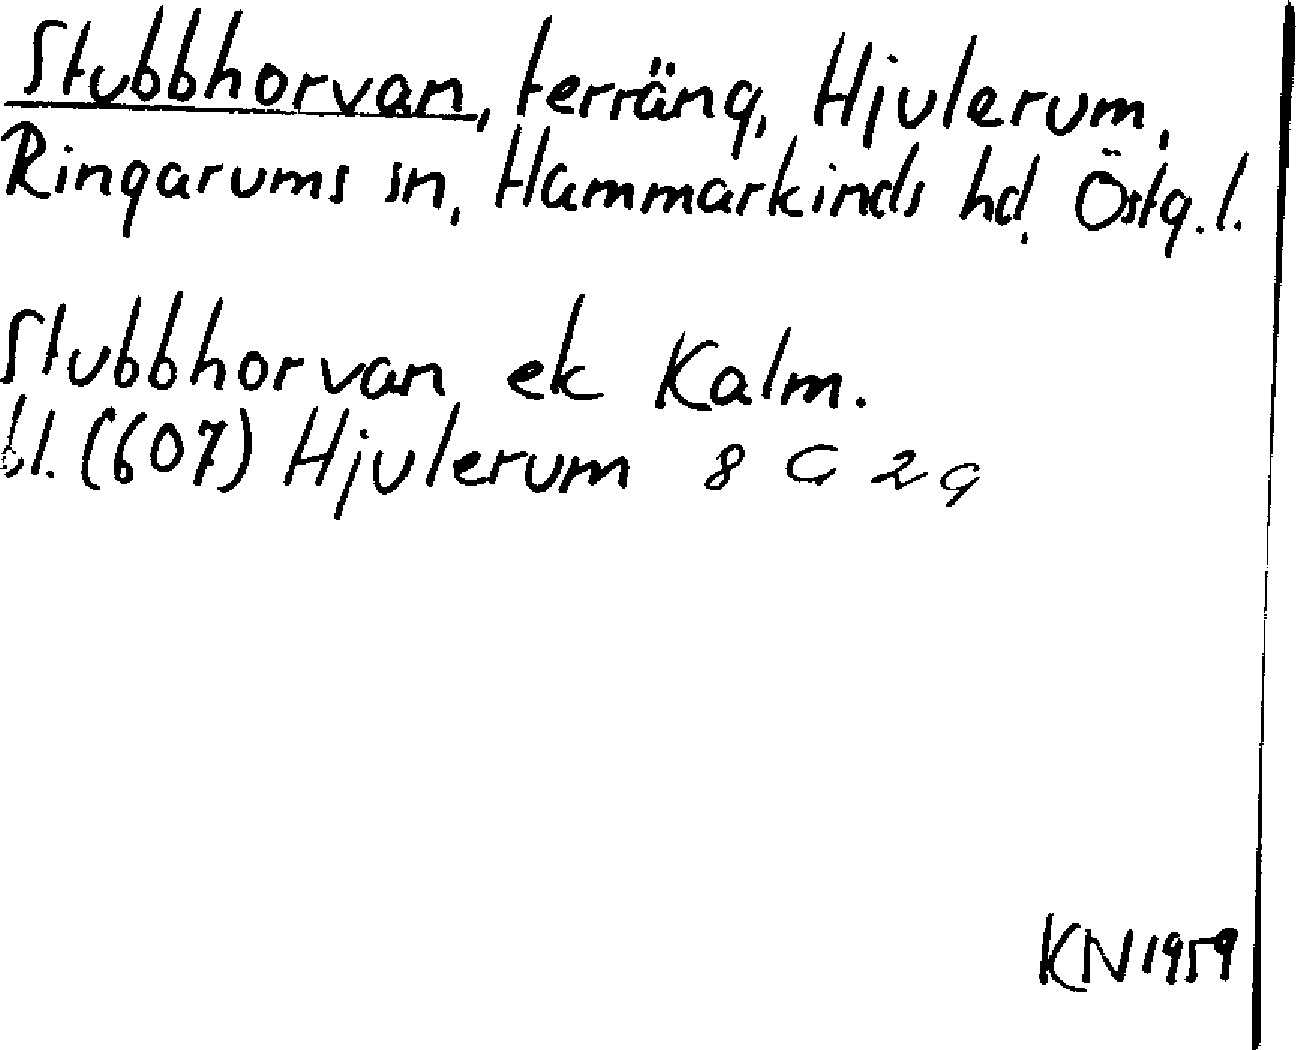 Stubbhorvan, terräng, Hjulerum,
Ringarums sn, Hammarkinds hd, Östg.l.
Stubbhorvan ek Kalm.
bl. (607) Hjulerum 8 G 2g
KN 1959